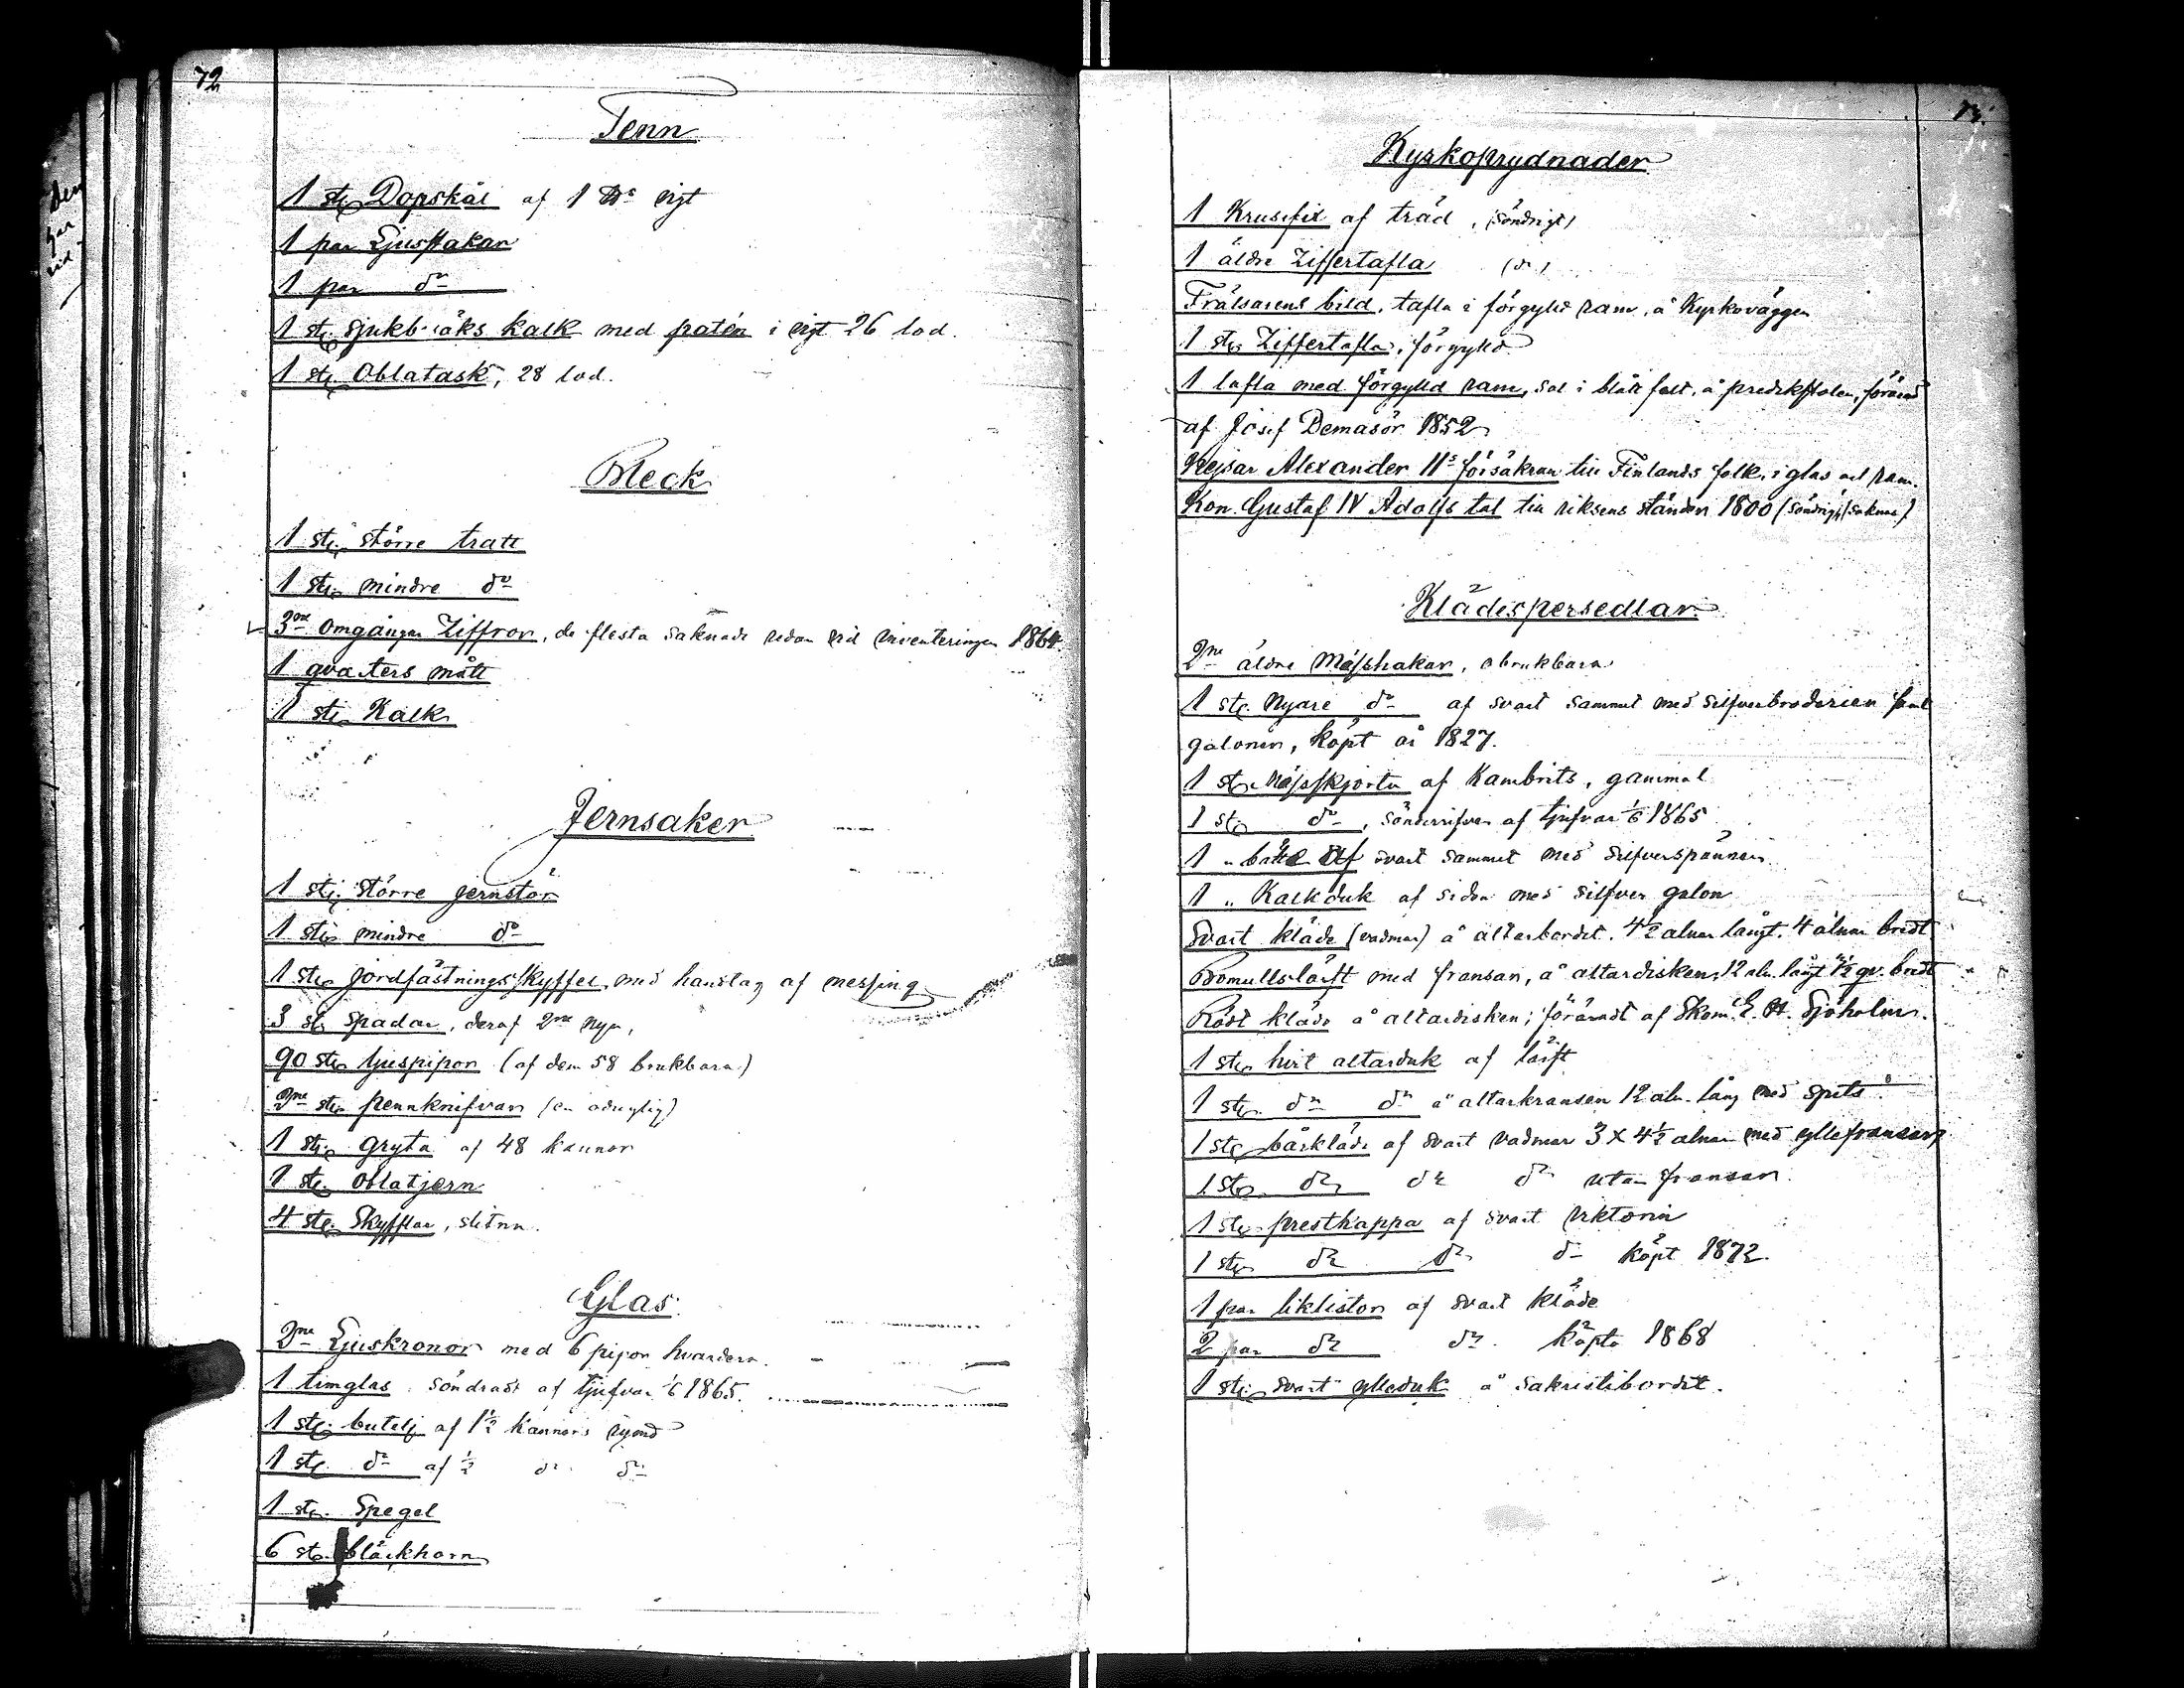 72
Tenn
1 st. Dopskål af 1 ℔s vigt
1 par Ljusstakar
1 par do
1 st. sjukbesöks kalk med patén i vigt 26 lod.
1 st. Oblatask, 28 lod.
Bleck
1 st. större tratt
1 st. mindre do
3ne omgångar Ziffror, de flesta saknade redan vid inventeringen 1864.
1 qvarters mått
1 st. Kalk
Jernsaker
1 st. större jernstör
1 st. mindre do
1 st. jordfästningsskyffel med handtag af messing
3 st. spadar, deraf 2ne nya,
90 st. ljuspipor (af dem 58 brukbara)
3ne st. pennknifvar (en oduglig)
1 st. gryta af 48 kannor
1 st. Oblatjern
4 st. Skyfflar, slitna.
Glas
2ne Ljuskronor med 6 pipor hvardera.
1 timglas, söndradt af tjufvar 1/6 1865.
1 st. butelj af 1½ kannors rymd
1 st. do af ½ do do
1 st. Spegel
6 st. bläckhorn
73.
Kyrkoprydnader
1 Krusifix af träd, (söndrigt)
1 äldre Ziffertafla (do)
Frälsarens bild, tafla i förgylld ram, å Kyrkoväggen
1 st. Ziffertafla, förgylld
1 tafla med förgylld ram, sol i blått fält, å predikstolen, förärad
af Josef Demasör 1852
Kejsar Alexander IIs försäkran till Finlands folk, i glas och ram.
Kon. Gustaf IV Adolfs tal till riksens ständer 1800 (söndrigt) (saknas)
Klädespersedlar
2ne äldre Mässhakar, obrukbara
1 st. nyare do af svart sammet med silfverbroderier samt
galoner, köpt år 1827.
1 st. Mässkjorta af Kambrits, gammal
1 st. do, sönderrifven af tjufvar 1/6 1865
1 " af svart sammet med silfverspännen
1 " Kalkduk af siden med silfver galon
Svart kläde (vadmar) å altarbordet. 4½ alnar långt. 4 alnar bredt
Bomullslärft med fransar, å altardisken, 12 aln. långt ½ qv. bredt
Rödt kläde å altardisken; föräradt af Skom. E. H. Sjöholm.
1 st. hvit altarduk af lärft
1 st. do do å altarkransen 12 aln. lång med spets
1 st. bårkläde af svart vadmar 3 x 4½ alnar med yllefransar
1 st. do do do utan fransar.
1 st. prestkappa af svart viktoria
1 st. do do do köpt 1872.
1 par likliston af svart kläde
2 par do do köpta 1868
1 st. svart ylleduk å sakristibordet.